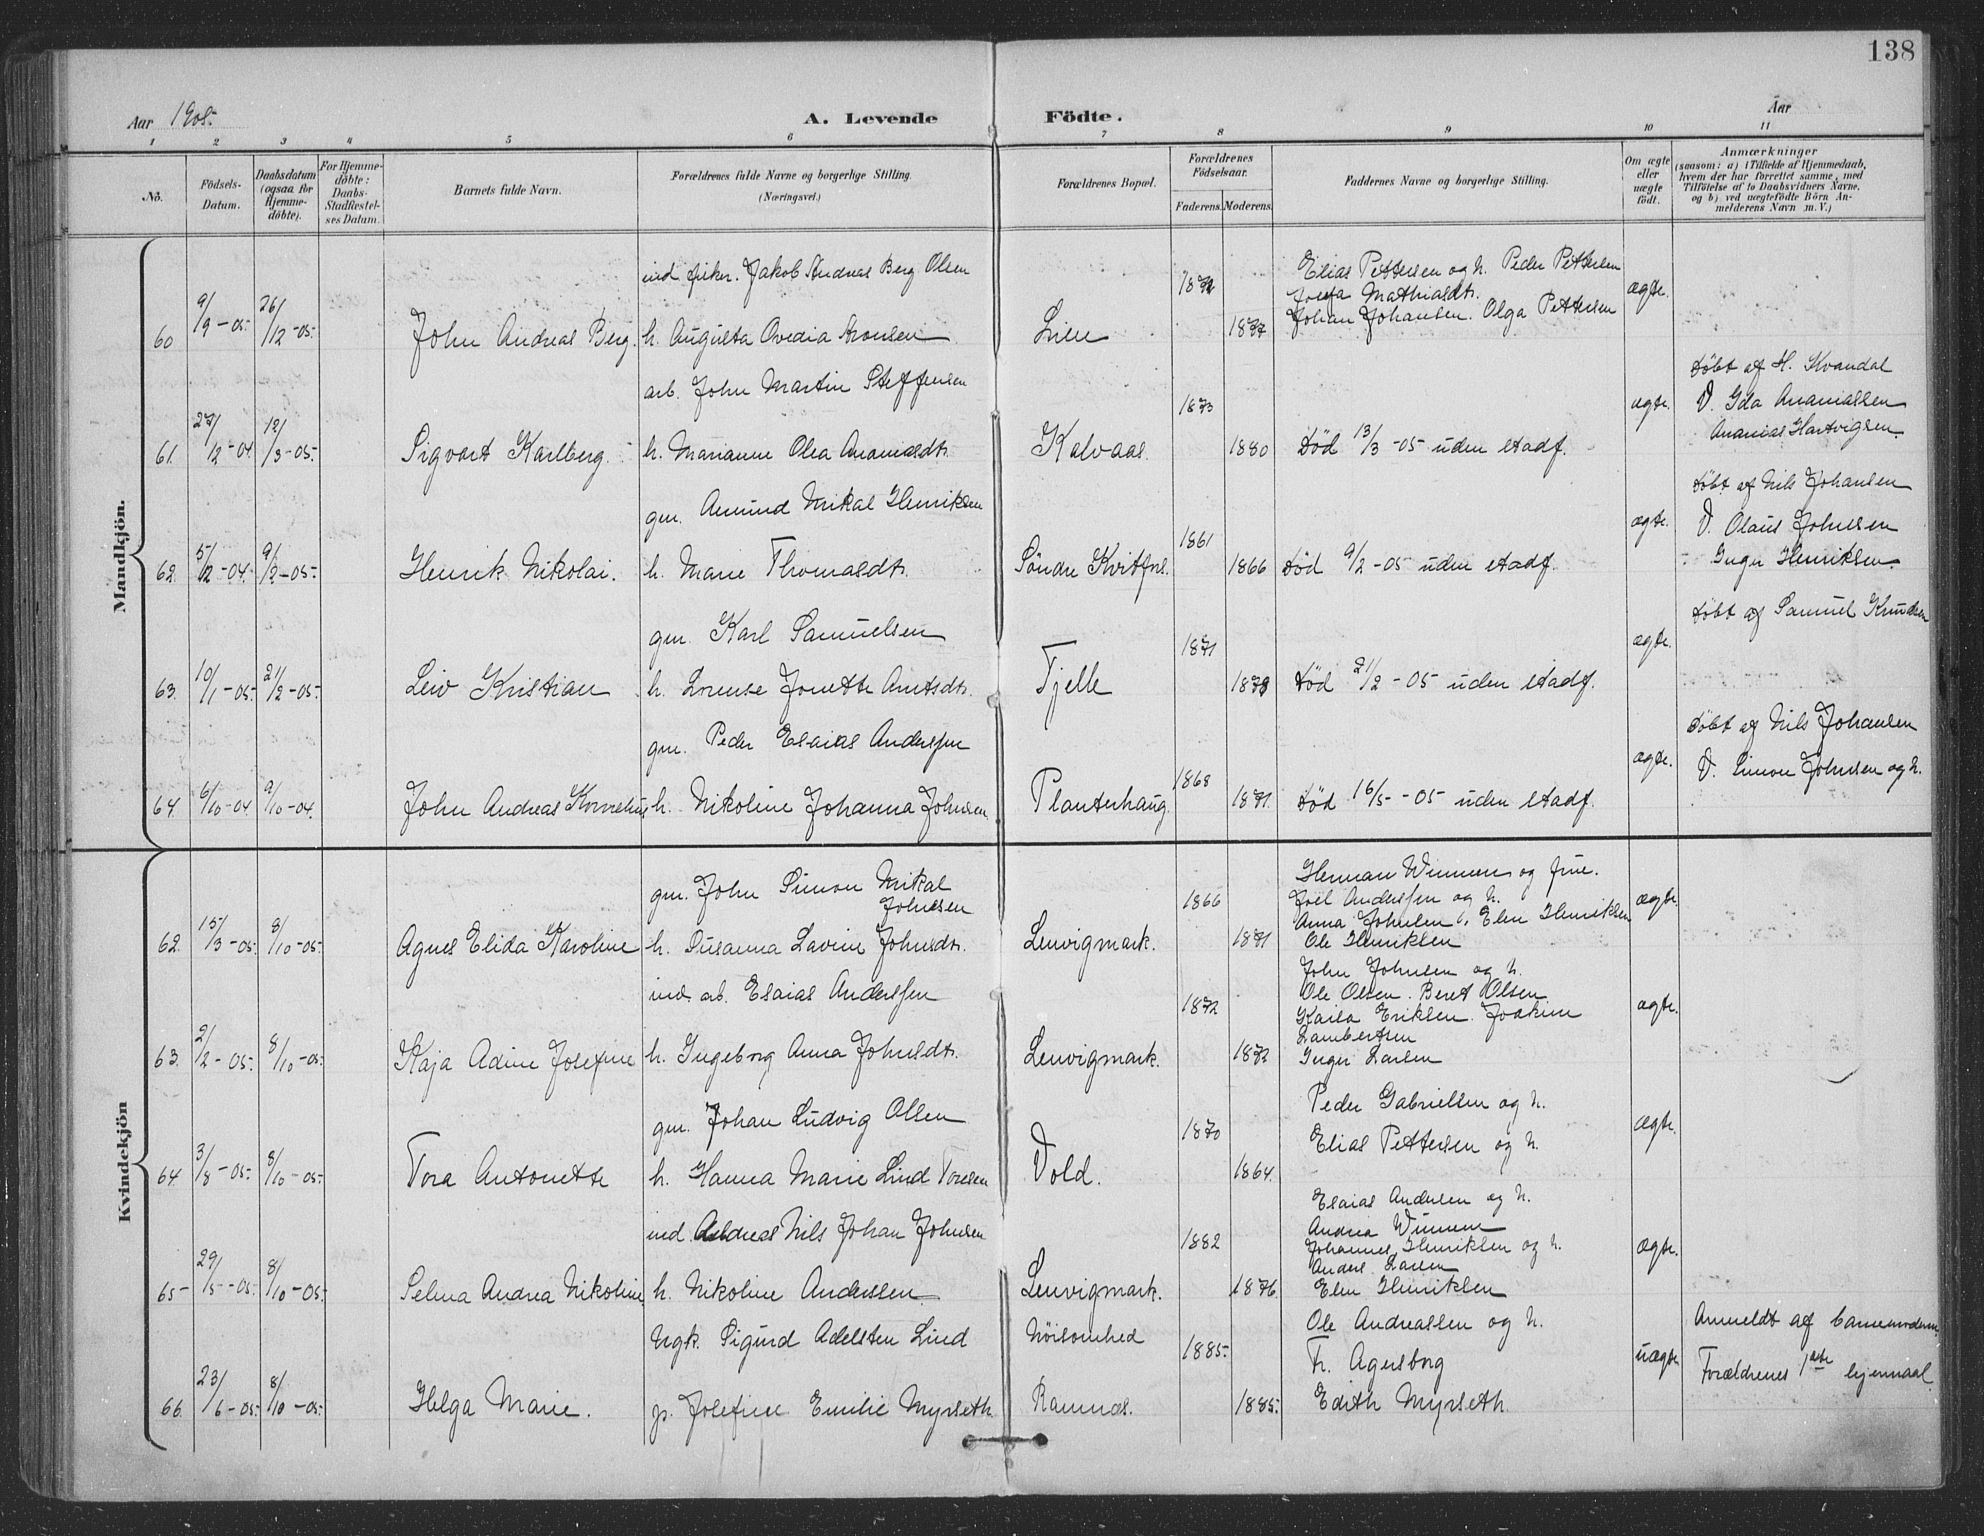 138
Aar 1905.
A. Levende Födte.
Aar
1 2 3 4 5 6 7 8 9 10 11
No.
Födsels-Datum.
Daabsdatum (ogsaa for Hjemme-döbte).
For Hjemme-döbte: Daabs-Stadfæstel-ses Datum.
Barnets fulde Navn.
Forældrenes fulde Navne og borgerlige Stilling. (Næringsvei.)
Forældrenes Bopæl.
Forældrenes Födselsaar.
Faderens. Moderens.
Faddernes Navne og borgerlige Stilling.
Om ægte eller uægte födt.
Anmærkninger
(saasom: a) i Tilfælde af Hjemmedaab,
hvem der har forrettet samme, med
Tilföielse af to Daabsvidners Navne,
og b) ved uægtefödte Börn An-
melderens Navn m. V.)
Mandkjön.
ind fisker. Jakob Andreas Berg Olsen
1872
Elias Pettersen og h. Peder Pettersen
Josefa Mathiasdtr.
ægte.
60 9/9-05. 26/12-05. John Andreas Berg. h. Augusta Ovedia Aronsen Lien 1877 Johan Johansen. Olga Pettersen
arb. John Martin Steffensen 1873 ægte.
døbt af H. Kvandal
V. Ida Ananiassen
Ananias Hartvigsen.
61. 27/12-04 12/3-05. Sigvart Karlberg. h. Marianne Olea Ananiasdtr. Kalvaas 1880 død 13/3-05 uden stadf.
gm. Amund Mikal Henriksen 1861 ægte.
døbt af Nils Johansen
V. Olaus Johnsen
Inger Henriksen.
62. 5/12-04. 9/2-05. Henrik Nikolai. h. Marie Thomasdtr. Søndre Kvitfors. 1866 død 9/2-05 uden stadf.
gm. Karl Samuelsen 1871 ægte.
døbt af Samuel Knudsen
63. 10/1-05. 21/2-05. Leiv Kristian h. Lorense Jonette Arntsdtr. Tjelle 1878 død 21/2-05 uden stadf.
gm. Peder Esaias Anderssen 1868 ægte.
døbt af Nils Johansen
V. Simon Johnsen og h.
64. 6/10-04. 9/10-04. John Andreas Kornelius h. Nikoline Johanna Johnsen Planterhaug. 1871. død 16/5-05 uden stadf.
Kvindekjön
gm. John Simon Mikal Johnsen
1866
Herman Winnem og frue.
Joel Anderssen og h.
Anna Johnsen, Elen Henriksen
ægte.
62. 15/3-05. 8/10-05. Agnes Elida Karoline h. Susanna Lavine Johnsdtr. Lenvigmark. 1871 Ole Henriksen
ind. arb. Esaias Anderssen
1872
John Johnsen og h.
Ole Olsen. Beret Olsen
Kaisa Eriksen. Joakim
Lambertsen
ægte.
63. 2/2-05. 8/10-05. Kaja Adine Josefine h. Ingeborg Anna Johnsdtr. Lenvigmark. 1872 Inger Larsen
gm. Johan Ludvig Olsen 1870 Peder Gabrielsen og h. ægte.
Elias Pettersen og h.
64. 3/8-05. 8/10-05. Tora Antonette h. Hanna Marie Lind Toresen Vold. 1864.
ind. Nils Johan Johnsen
1882
Esaias Andersen og h.
Andrea Winnem
Johannes Henriksen og h.
Anders Larsen
ægte.
65 29/5-05. 8/10-05. Selma Andrea Nikoline, h. Nikoline Anderssen. Lenvigmark. 1876. Elen Henriksen
Ugk. Sigurd Adelsten Lind Nöisomhed 1885. Ole Andreassen og h.
Fr. Agersborg
uægte
Anmeldt af barnemoderen.
Forældrenes 1ste leiermaal.
66. 23/6-05. 8/10-05. Helga Marie. p. Josefine Emilie Myrseth Ramnes. 1885. Edith Myrseth.